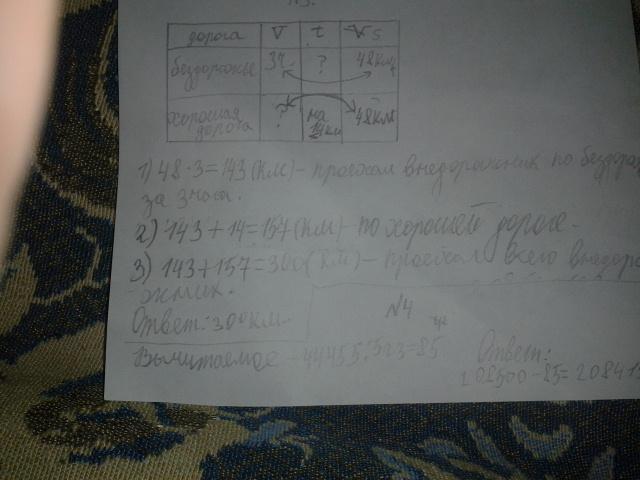 дорога V t S
бездорожье 3ч. ? 48км
хорошая дорога ? на 48км
1) 48·3=143(км)- проехал внедорожник по
за 3часа.
2) 143+14=157(км)- по хорошей дороге.
3) 143+157=300(км)- проехал всего
Ответ: 300км.
N4
Вычитаемое - 44455:523=85
Ответ:
208500-85=